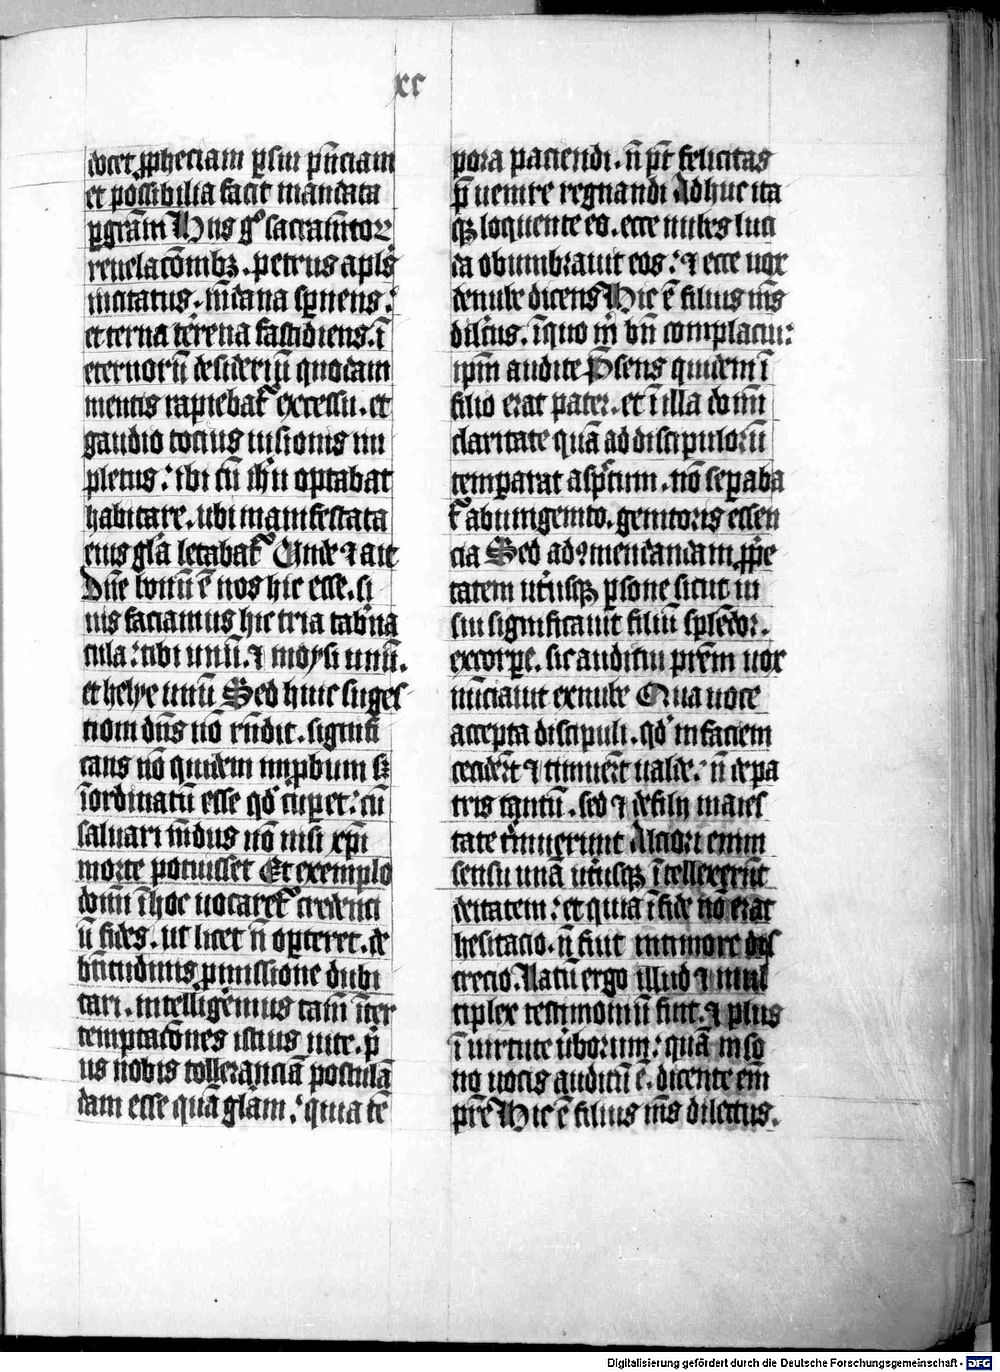 xc
docet ꝓpheciam ꝑ sui p̄nciam
et possibilia facit mandata
ꝑ grām Hiis gͦ sacramītoꝝ
reuelac̄onibꝫ . petrus apl̄s
incitatus . mūdana sꝑnens :
et terna terrena fastidiens . ī
eternorū desideriū quodam
mentis rapiebat᷑ excessu . et
gaudio tocius uisionis im
pletus : ibi cū ih̄u optabat
habitare . ubi manifestata
eius gl̄a letabat᷑ Unde ⁊ ait
Dn̄e bonū ē nos hic esse . si
uis faciamus hic tria tab̄na
cula : tibi unū . ⁊ moysi unū .
et helye unū Sed huic suges
tioni dn̄s nō rn̄dit . signifi
cans nō quidem imꝓbum sꝫ
īordinatū esse qd̓ cuꝑet : cū
saluari mūdus nō nisi xp̄i
morte potuisset Et exemplo
domī ī hoc uocaret᷑ credenti
ū fides . ut licet n̄ oꝑteret . de
b̄titudinis ꝓmissione dubi
tari . intelligemus tam̄ īter
temptac̄ones istius uite . p̓
us nobis tolleranciā postulā
dam esse quā gl̄am : quia tē
pora paciendi . n̄ pt̄ felicitas
p̄uenire regnandi Adhuc ita
qꝫ loquente eo . ecce nubes luci
da obumbrauit eos : ⁊ ecce uox
de nube dicens Hic ē filius m̄s
dilc̄us . ī quo m̓ bn̄ complacui :
ip̄m audite P̄sens quidem ī
filio erat pater . et ī illa domī
claritate quā ad discipulorū
temparat asp̄ctum . nō sepaba
t᷑ ab unigenito . genitoris essen
cia Sed ad ꝯmendandam ꝓp̓e
tatem ut̓usqꝫ ꝑsone sicut ui
sui significauit filiū splēdor .
ex corꝑe . sic auditui pr̄em uox
nūciauit ex nube Qua uoce
accepta discipuli . qd̓ in faciem
cecider̄t ⁊ timuer̄t ualde : n̄ de pa
tris tantū . sed ⁊ de filij maies
tate timuerunt Alciori enim
sensu unā ut̓usqꝫ ītellexerūt
deitatem : et quia ī fide nō erat
hesitacio . n̄ fuit in timore dis
crecio . Latū ergo illud ⁊ mul
tiplex testimoniū fuit . ⁊ plus
ī uirtute ūborum : quā in so
no uocis auditū ē . dicente em̄
pr̄e Hic ē filius m̄s dilectus .
Digitalisierung gefördert durch die Deutsche Forschungsgemeinschaft - DFG